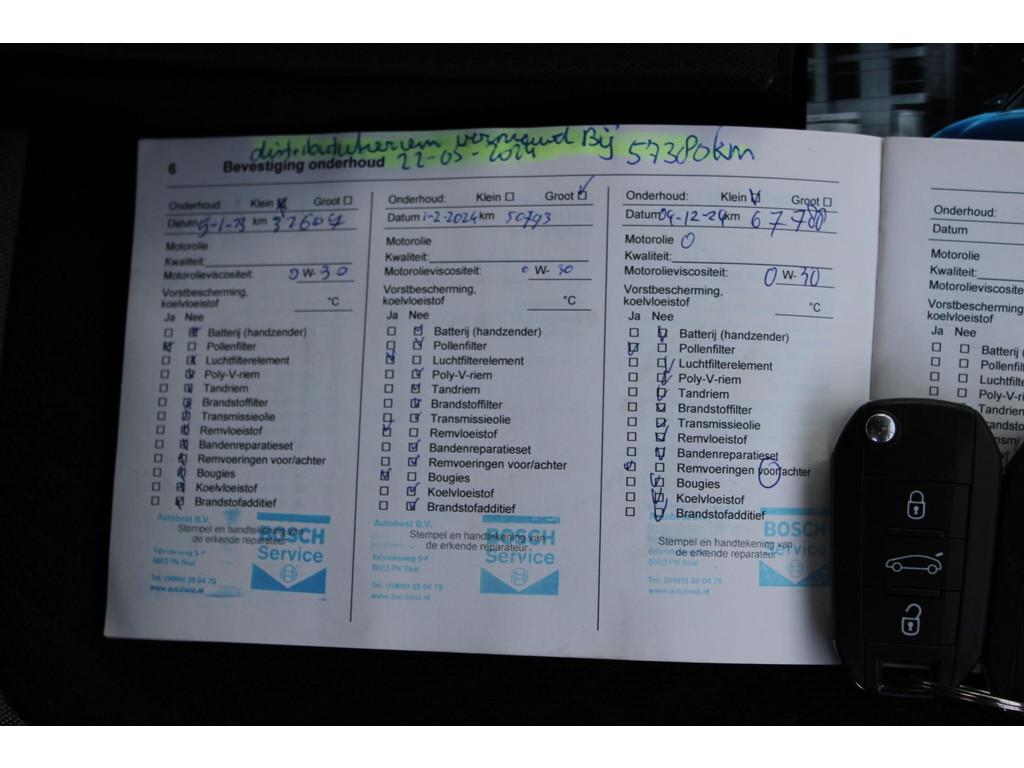 distributieriem vernieuwd Bij 57380km
22-05-2024
6 Bevestiging onderhoud
Onderhoud: Klein Groot
Datum 5-1-23 km 32604
Motorolie
Kwaliteit:
Motorolieviscositeit: 0 W- 30
Vorstbescherming,
koelvloeistof °C
Ja Nee
Batterij (handzender)
Pollenfilter
Luchtfilterelement
Poly-V-riem
Tandriem
Brandstoffilter
Transmissieolie
Remvloeistof
Bandenreparatieset
Remvoeringen voor/achter
Bougies
Koelvloeistof
Brandstofadditief
Autobest B.V.
Stempel en handtekening van
de erkende reparateur.
5683 PN Best
Tel: (0499) 39 04 75
www.autobest.nl
BOSCH
Service
Onderhoud: Klein Groot
Datum 1-2-2024 km 50793
Motorolie
Kwaliteit:
Motorolieviscositeit: 0 W- 30
Vorstbescherming,
koelvloeistof °C
Ja Nee
Batterij (handzender)
Pollenfilter
Luchtfilterelement
Poly-V-riem
Tandriem
Brandstoffilter
Transmissieolie
Remvloeistof
Bandenreparatieset
Remvoeringen voor/achter
Bougies
Koelvloeistof
Brandstofadditief
Autobest B.V.
Stempel en handtekening van
de erkende reparateur.
5683 PN Best
Tel: (0499) 39 04 75
www.autobest.nl
BOSCH
Service
Onderhoud: Klein Groot
Datum 04-12-24 km 67780
Motorolie 0
Kwaliteit:
Motorolieviscositeit: 0 W- 30
Vorstbescherming,
koelvloeistof °C
Ja Nee
Batterij (handzender)
Pollenfilter
Luchtfilterelement
Poly-V-riem
Tandriem
Brandstoffilter
Transmissieolie
Remvloeistof
Bandenreparatieset
Remvoeringen voor/achter
Bougies
Koelvloeistof
Brandstofadditief
Autobest B.V.
Stempel en handtekening van
de erkende reparateur.
5683 PN Best
Tel: (0499) 39 04 75
www.autobest.nl
BOSCH
Service
Onderhoud:
Datum
Motorolie
Kwaliteit:
Motorolieviscosite
Vorstbescherming,
koelvloeistof
Ja Nee
Batterij (
Pollenfilt
Luchtfilte
Poly-V-ri
Tandriem